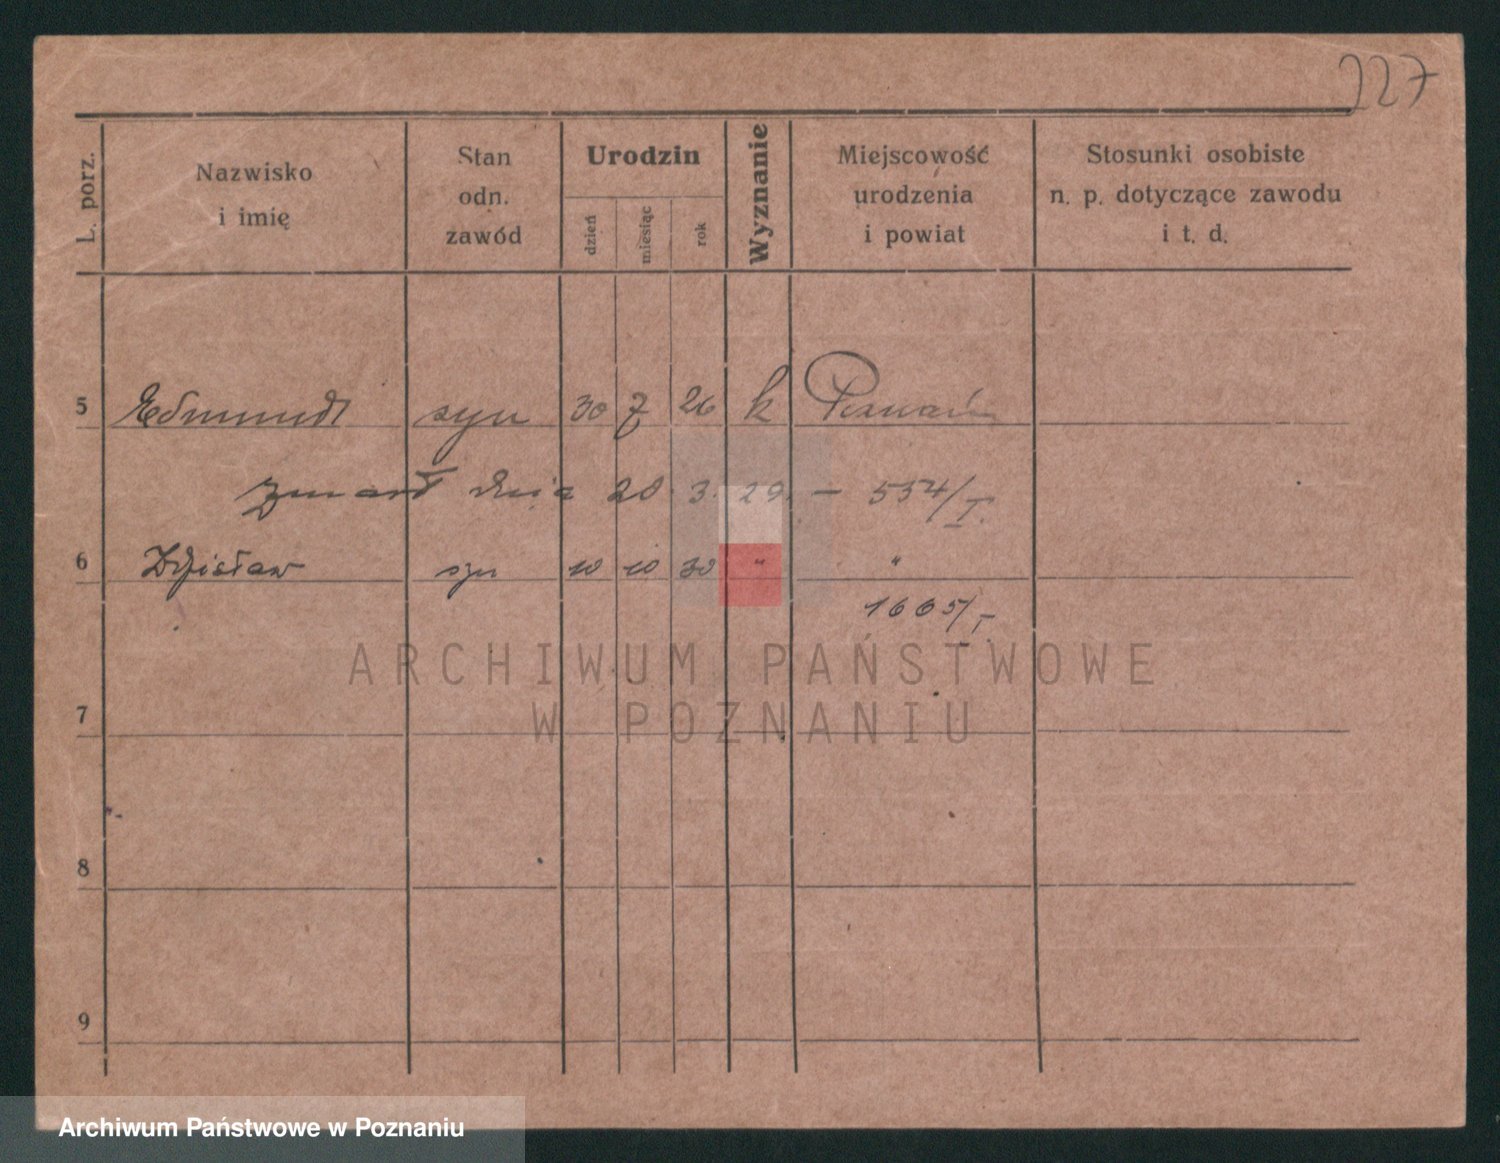 227
L. porz.
Nazwisko
i imię
Stan
odn.
zawód
Urodzin
dzień
miesiąc
rok
Wyznanie
Miejscowość
urodzenia
i powiat
Stosunki osobiste
n. p. dotyczące zawodu
i t. d.
5 Edmund syn 30 7 26 k Poznań
zmarł dnia 20. 3. 29. – 554/I.
6 Zdzisław syn 10 10 30 " "
1665/I.
ARCHIWUM PAŃSTWOWE
W POZNANIU
7
8
9
Archiwum Państwowe w Poznaniu